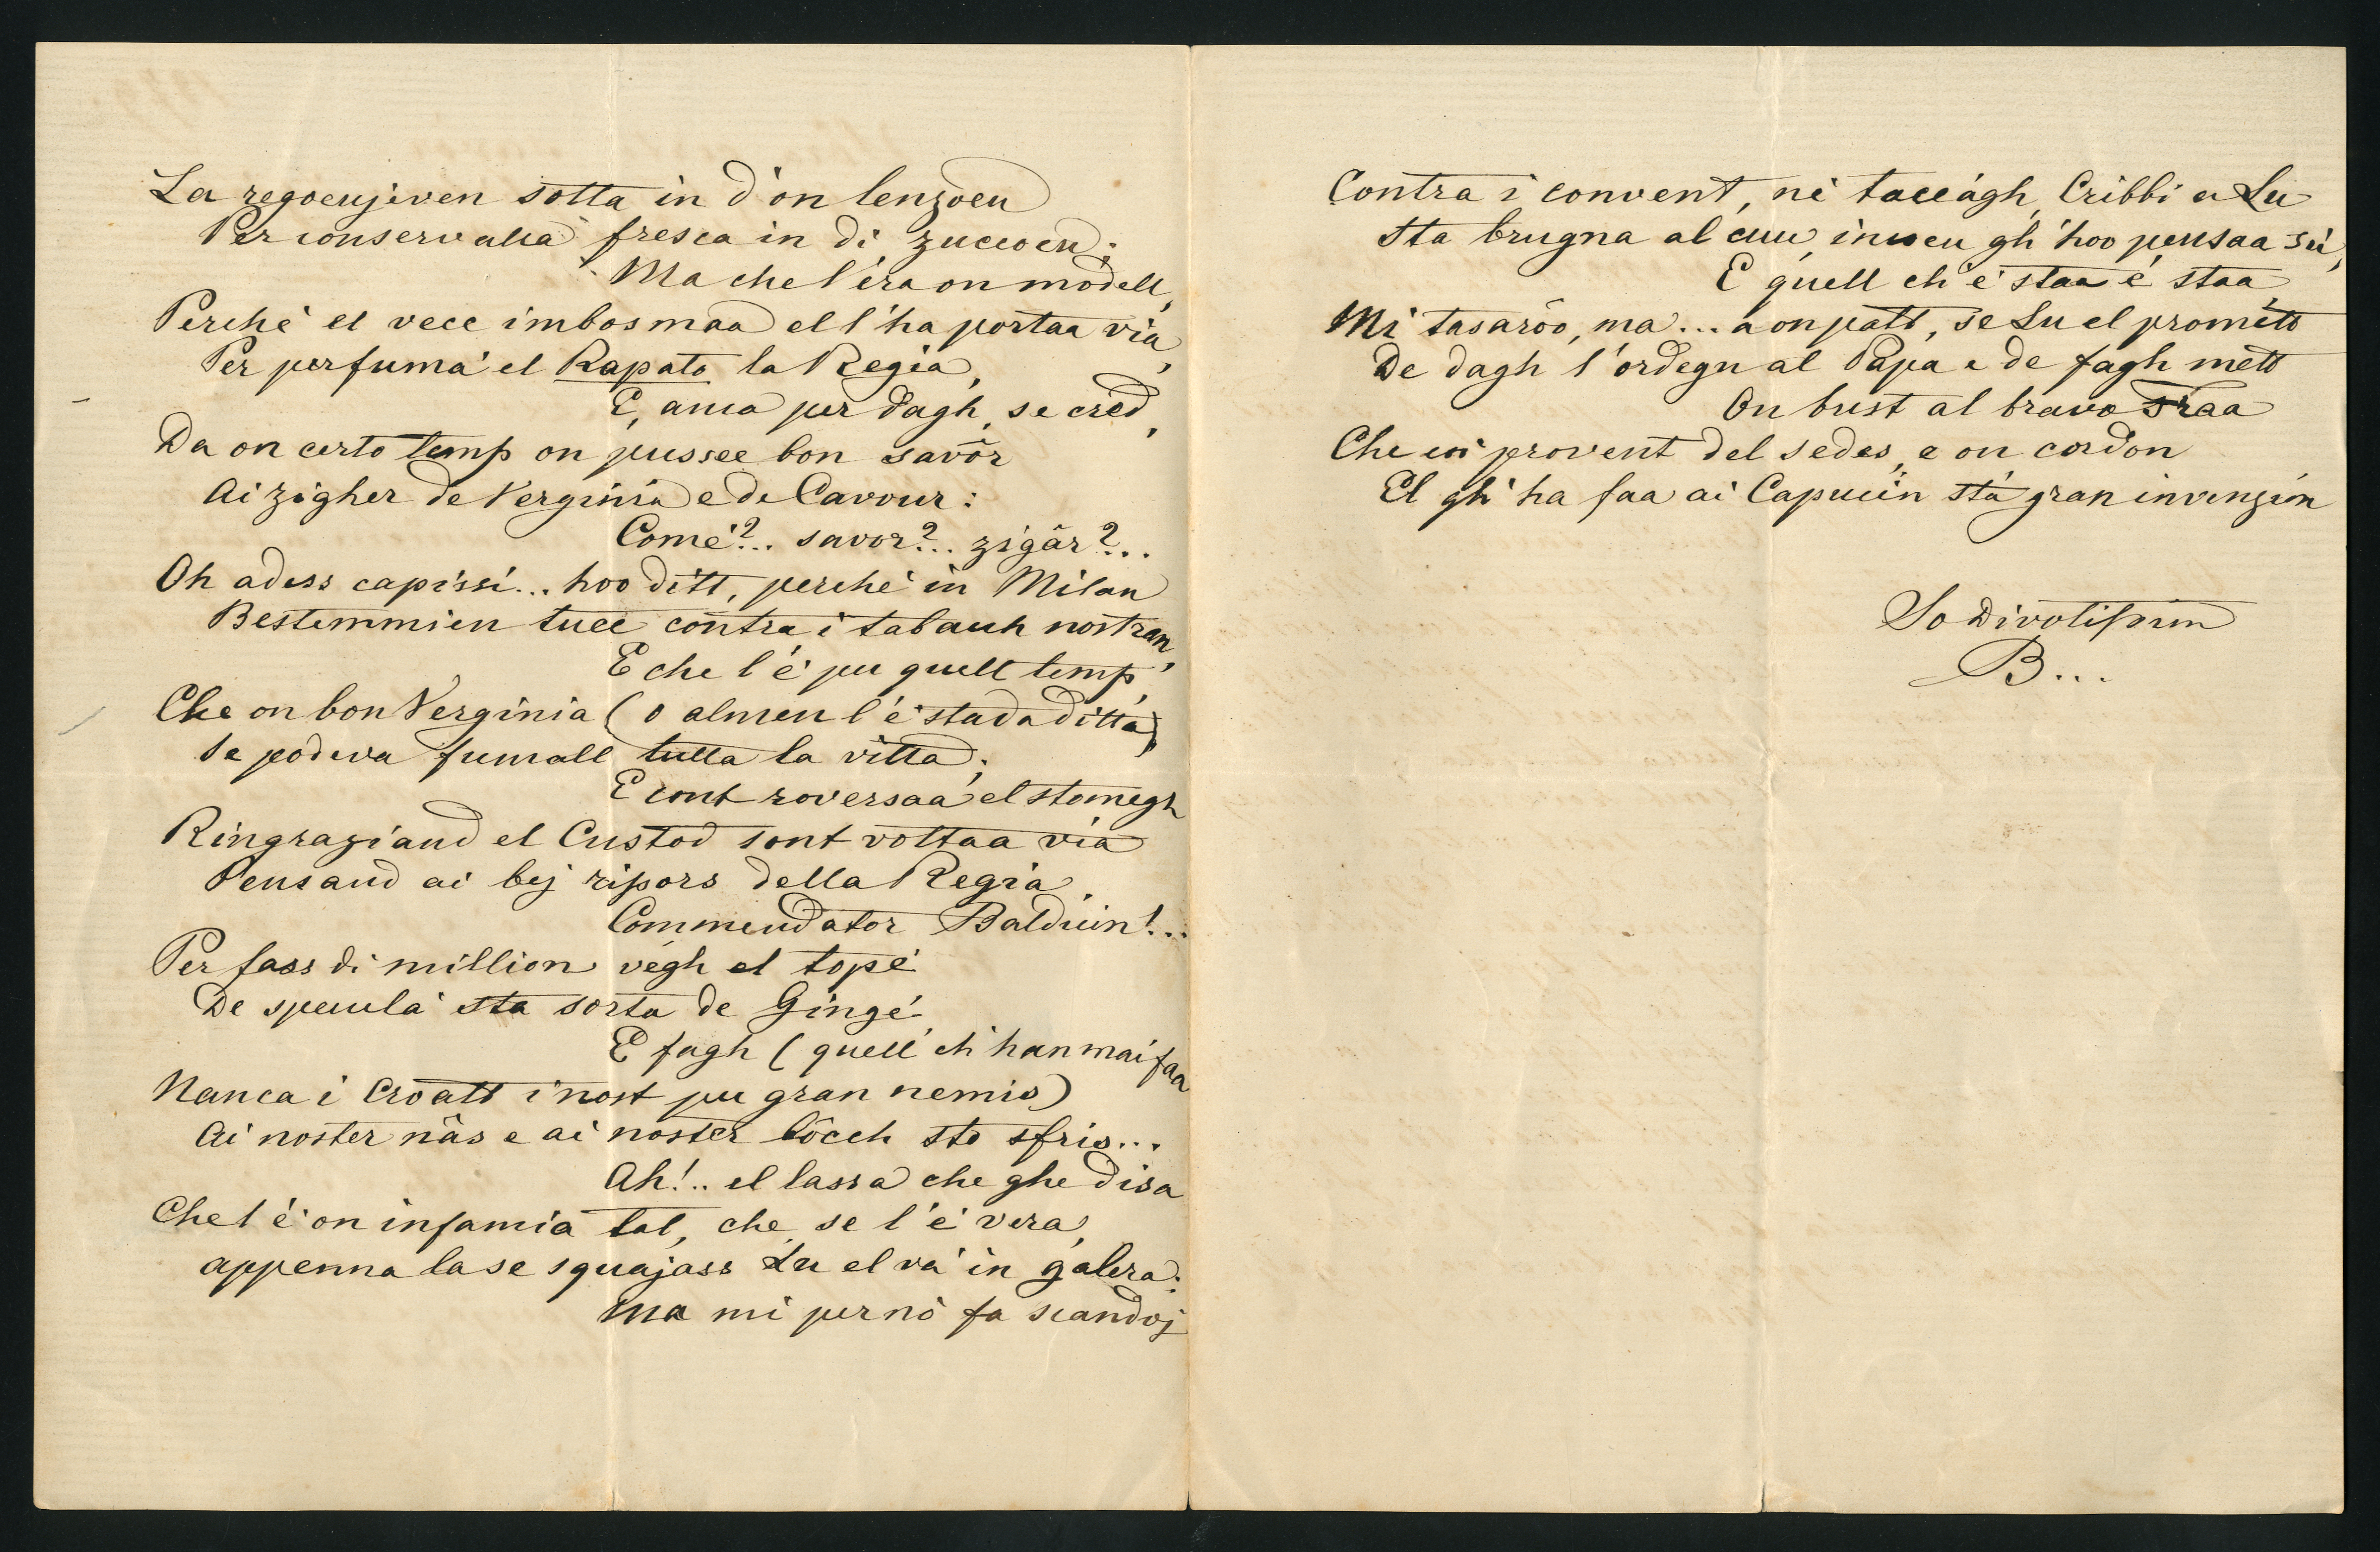 La regoeujeven sotta in d'on lenzoeu
Per conservalla fresca in di zuccoeu;
Ma che l'éra on modell,
Perchè el vecc imbosmaa el l'ha portaa via,
Per perfumà el Rapato la Regia,
E, anca per dagh, se cred,
Da on certo temp on pussee bon savôr
Ai zigher de Verginia e de Cavour:
Comè?.. savor?.. zigâr?..
Oh adess capissi... hoo ditt, perchè in Milan
Bestemmien tucc contra i tabacch nostran,
E che l'è pu quell temp,
Che on bon Verginia (o almen l'è stada ditta)
Se podeva fumall tutta la vitta;
E cont roversaa el stomegh
Ringraziand el Custod sont voltaa via
Pensand ai bej ripors della Regia.
Commendator Balduin!..
Per fass di million vegh el topé
De speculà sta sorta de Gingé
E fagh (quell ch'han mai faa
Nanca i Croatt i nost pu gran nemis)
Ai noster nâs e ai noster bôcch sto sfris...
Ah!.. el lassa che ghe disa
Che l'è on infamia tal, che se l'è vera,
appenna la se squajass Lu el và in galera.
Ma mi per nò fa scandoj
Contra i convent, nè taccagh Cribbi a Lu
Sta brugna al cuu, incoeu gh'hoo pensaa sù,
E quell ch'è staa è staa,
Mi tasaròo, ma... a on patt, se Lu el promett
De dagh l'ordegn al Papa e de fagh mett
On bust al bravo Fraa
Che coi provent del sedes, e on cordon
El gh'ha faa ai Capuccin stà gran invenzion
So Divotissim
B...